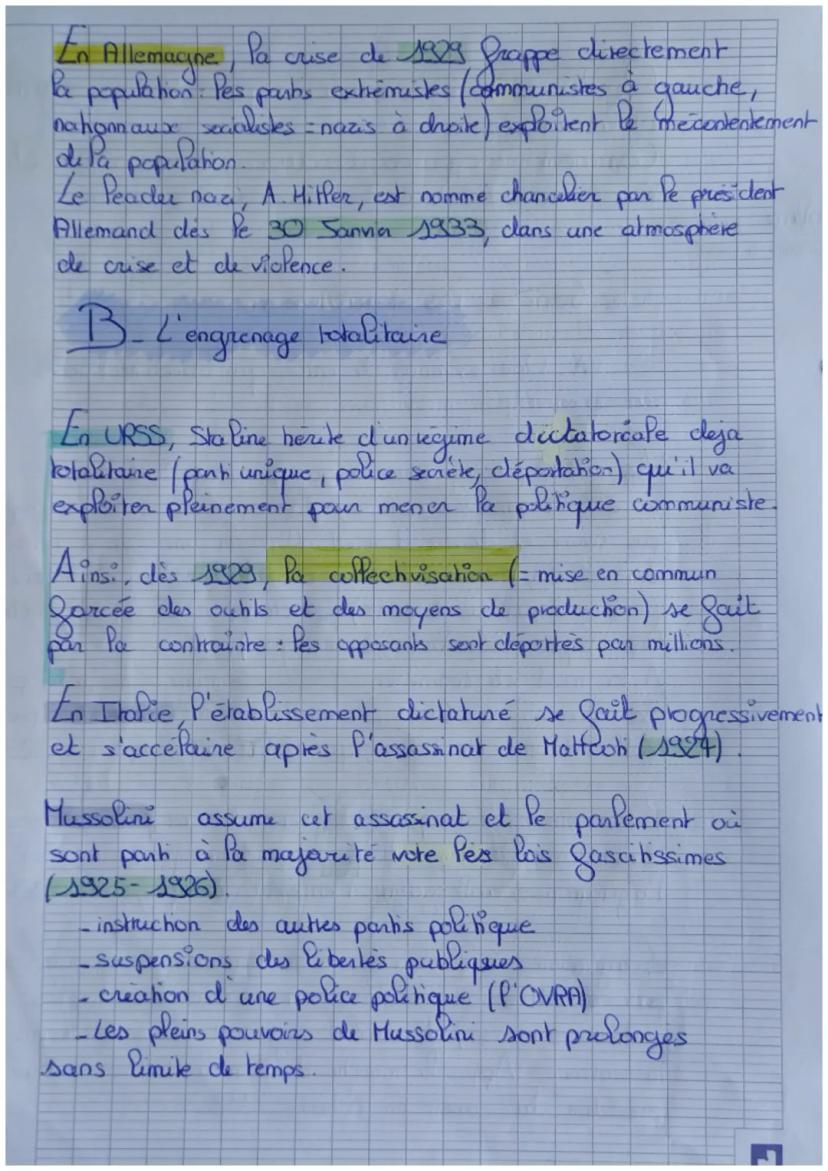 En Allemagne, la crise de 1929 frappe directement
la population : les partis extrémistes (communistes à gauche,
nationnaux socialistes = nazis à droite) exploitent le mécontentement
de la population.
Le leader nazi, A. Hitler, est nommé chancelier par le président
Allemand dès le 30 Janvier 1933, dans une atmosphère
de crise et de violence.
B- L'engrenage totalitaire
En URSS, Staline hérite d'un régime dictatoréale deja
totalitaire (parti unique, police secrète, déportation) qu'il va
exploiter pleinement pour mener la politique communiste.
Ainsi, dès 1929, la collectivisation (= mise en commun
forcée des outils et des moyens de production) se fait
par la contrainte : les opposants sont déportés par millions.
En Italie, l'établissement dictaturé se fait progressivement
et s'accélaire après l'assassinat de Matteoti (1924).
Mussolini assume cet assassinat et le parlement où
sont parti à la majorité vote les lois fascitissimes
(1925-1926).
- instruction des autres partis politique
- suspensions des libertés publiques
- création d'une police politique (l'OVRA)
- Les pleins pouvoirs de Mussolini sont prolongés
sans limite de temps.